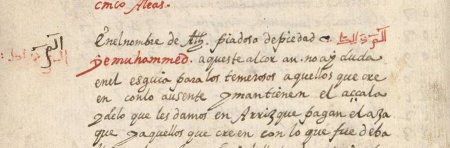 cinco Aleas.
Enelnombre de Allh. piadoso depiedad الم
yemuhammed. aqueste alcor an. no ay duda
enel esguia para los temerosos aquellos que cre
en conlo ausente ymantienen el accala
ydelo que les damos en Arrizque pagan el aza
que yaquellos que creen con lo que fue deba